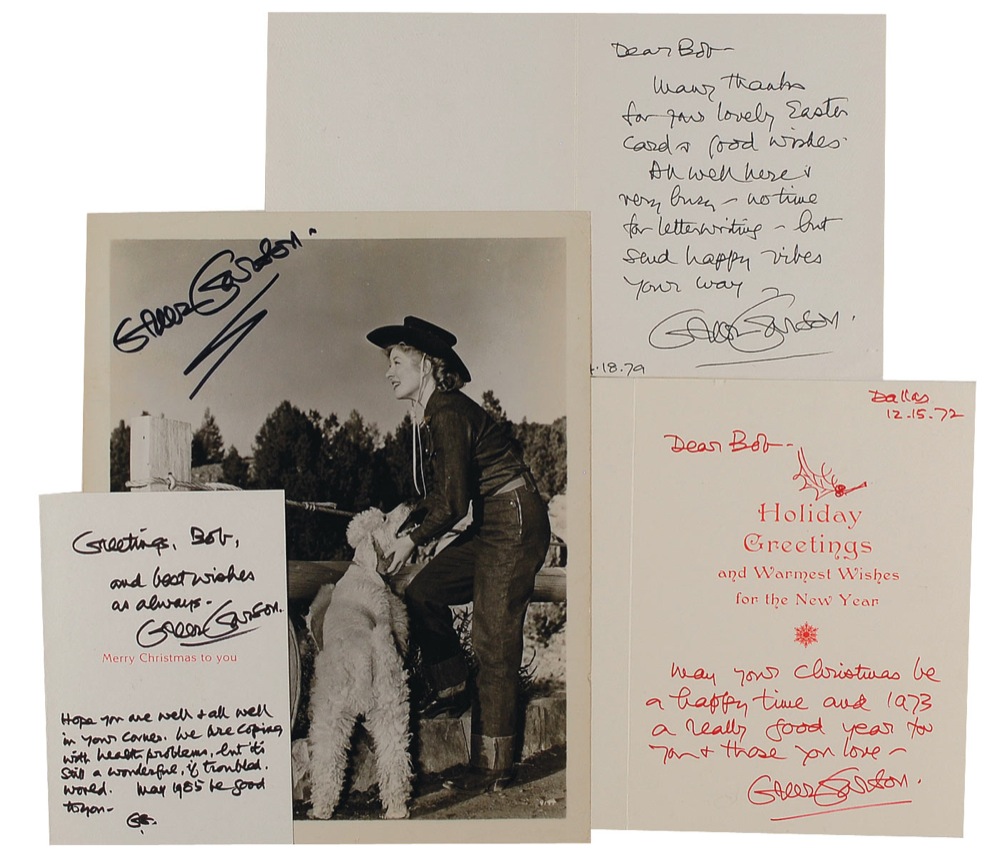 Dear Bob-
Many thanks
for your lovely Easter
card & good wishes.
All well here &
very busy - no time
for letterwriting - but
send happy vibes
your way
Greer Garson.
4.18.79
Greer Garson.
Dallas
12.15.72
Dear Bob-
Holiday
Greetings
and Warmest Wishes
for the New Year
May your Christmas be
a happy time and 1973
a really good year for
you & those you love -
Greer Garson.
Greetings, Bob,
and best wishes
as always -
Greer Garson.
Merry Christmas to you
Hope you are well & all well
in your corner. We are coping
with health problems, but it's
still a wonderful, if troubled,
world. May 1985 be good
to you -
GG.